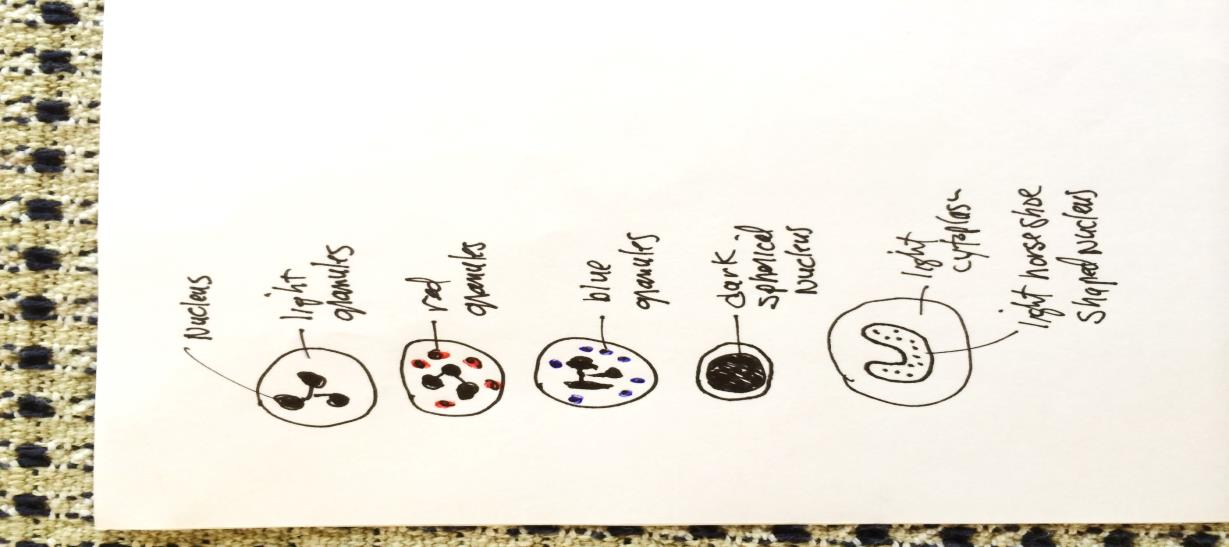 Nucleus
light
granules
red
granules
blue
granules
dark
spherical
nucleus
light
cytoplasm
light horse shoe
shaped nucleus